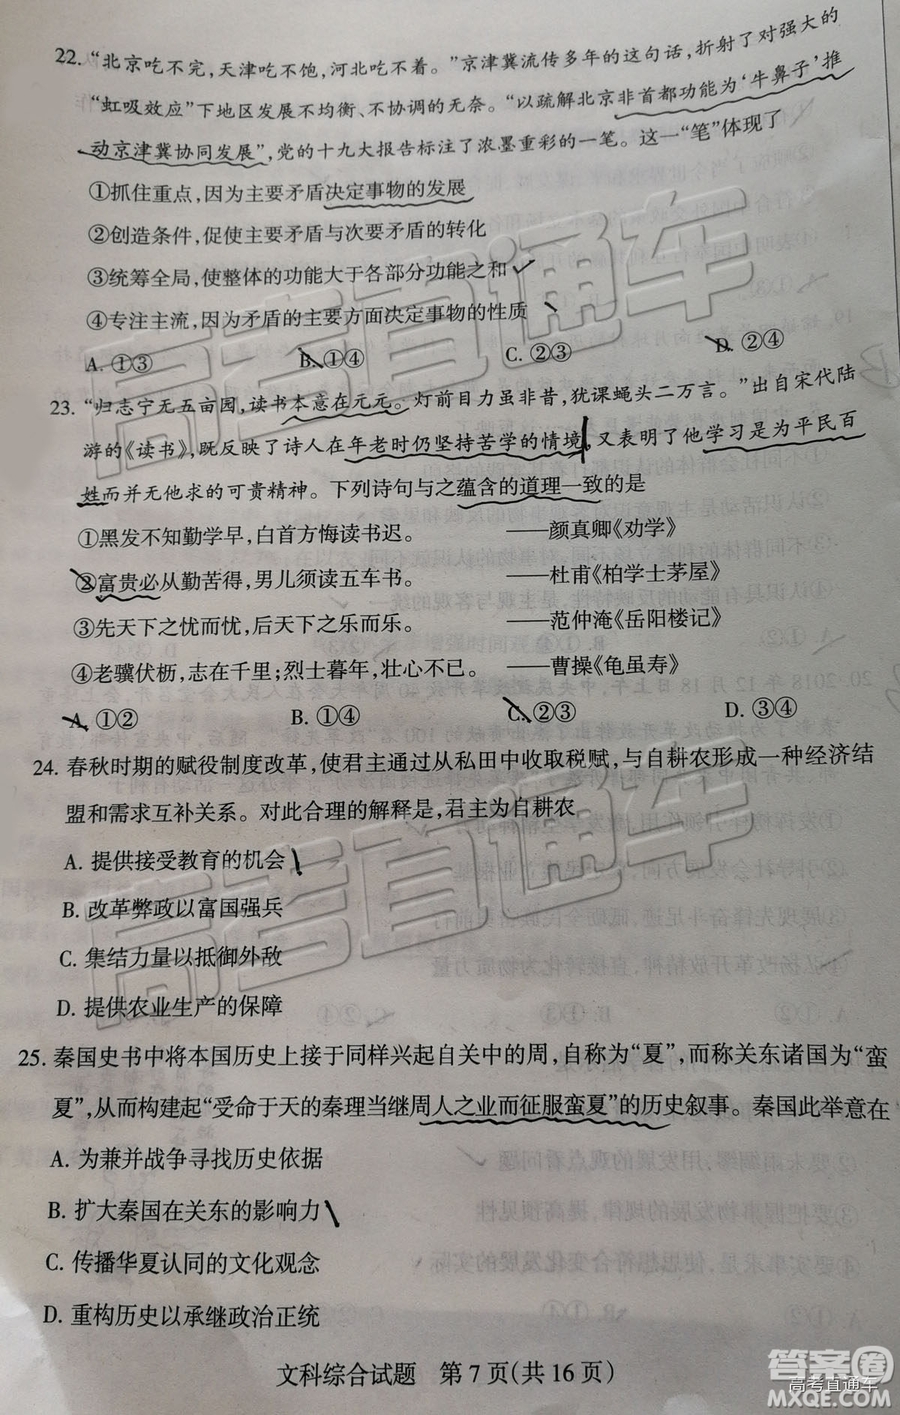 22. “北京吃不完，天津吃不饱，河北吃不着。”京津冀流传多年的这句话，折射了对强大的
“虹吸效应”下地区发展不均衡、不协调的无奈。“以疏解北京非首都功能为‘牛鼻子’推
动京津冀协同发展”，党的十九大报告标注了浓墨重彩的一笔。这一“笔”体现了
①抓住重点，因为主要矛盾决定事物的发展
②创造条件，促使主要矛盾与次要矛盾的转化
③统筹全局，使整体的功能大于各部分功能之和
④专注主流，因为矛盾的主要方面决定事物的性质
A. ①③ B. ①④ C. ②③ D. ②④
23. “归志宁无五亩园，读书本意在元元。灯前目力虽非昔，犹课蝇头二万言。”出自宋代陆
游的《读书》，既反映了诗人在年老时仍坚持苦学的情境，又表明了他学习是为平民百
姓而并无他求的可贵精神。下列诗句与之蕴含的道理一致的是
①黑发不知勤学早，白首方悔读书迟。 ——颜真卿《劝学》
②富贵必从勤苦得，男儿须读五车书。 ——杜甫《柏学士茅屋》
③先天下之忧而忧，后天下之乐而乐。 ——范仲淹《岳阳楼记》
④老骥伏枥，志在千里；烈士暮年，壮心不已。 ——曹操《龟虽寿》
A. ①② B. ①④ C. ②③ D. ③④
24. 春秋时期的赋役制度改革，使君主通过从私田中收取税赋，与自耕农形成一种经济结
盟和需求互补关系。对此合理的解释是，君主为自耕农
A. 提供接受教育的机会
B. 改革弊政以富国强兵
C. 集结力量以抵御外敌
D. 提供农业生产的保障
25. 秦国史书中将本国历史上接于同样兴起自关中的周，自称为“夏”，而称关东诸国为“蛮
夏”，从而构建起“受命于天的秦理当继周人之业而征服蛮夏”的历史叙事。秦国此举意在
A. 为兼并战争寻找历史依据
B. 扩大秦国在关东的影响力
C. 传播华夏认同的文化观念
D. 重构历史以承继政治正统
文科综合试题 第 7 页（共 16 页）
高考直通车
高考直通车
答案卷
高考直通车
MXQE.COM